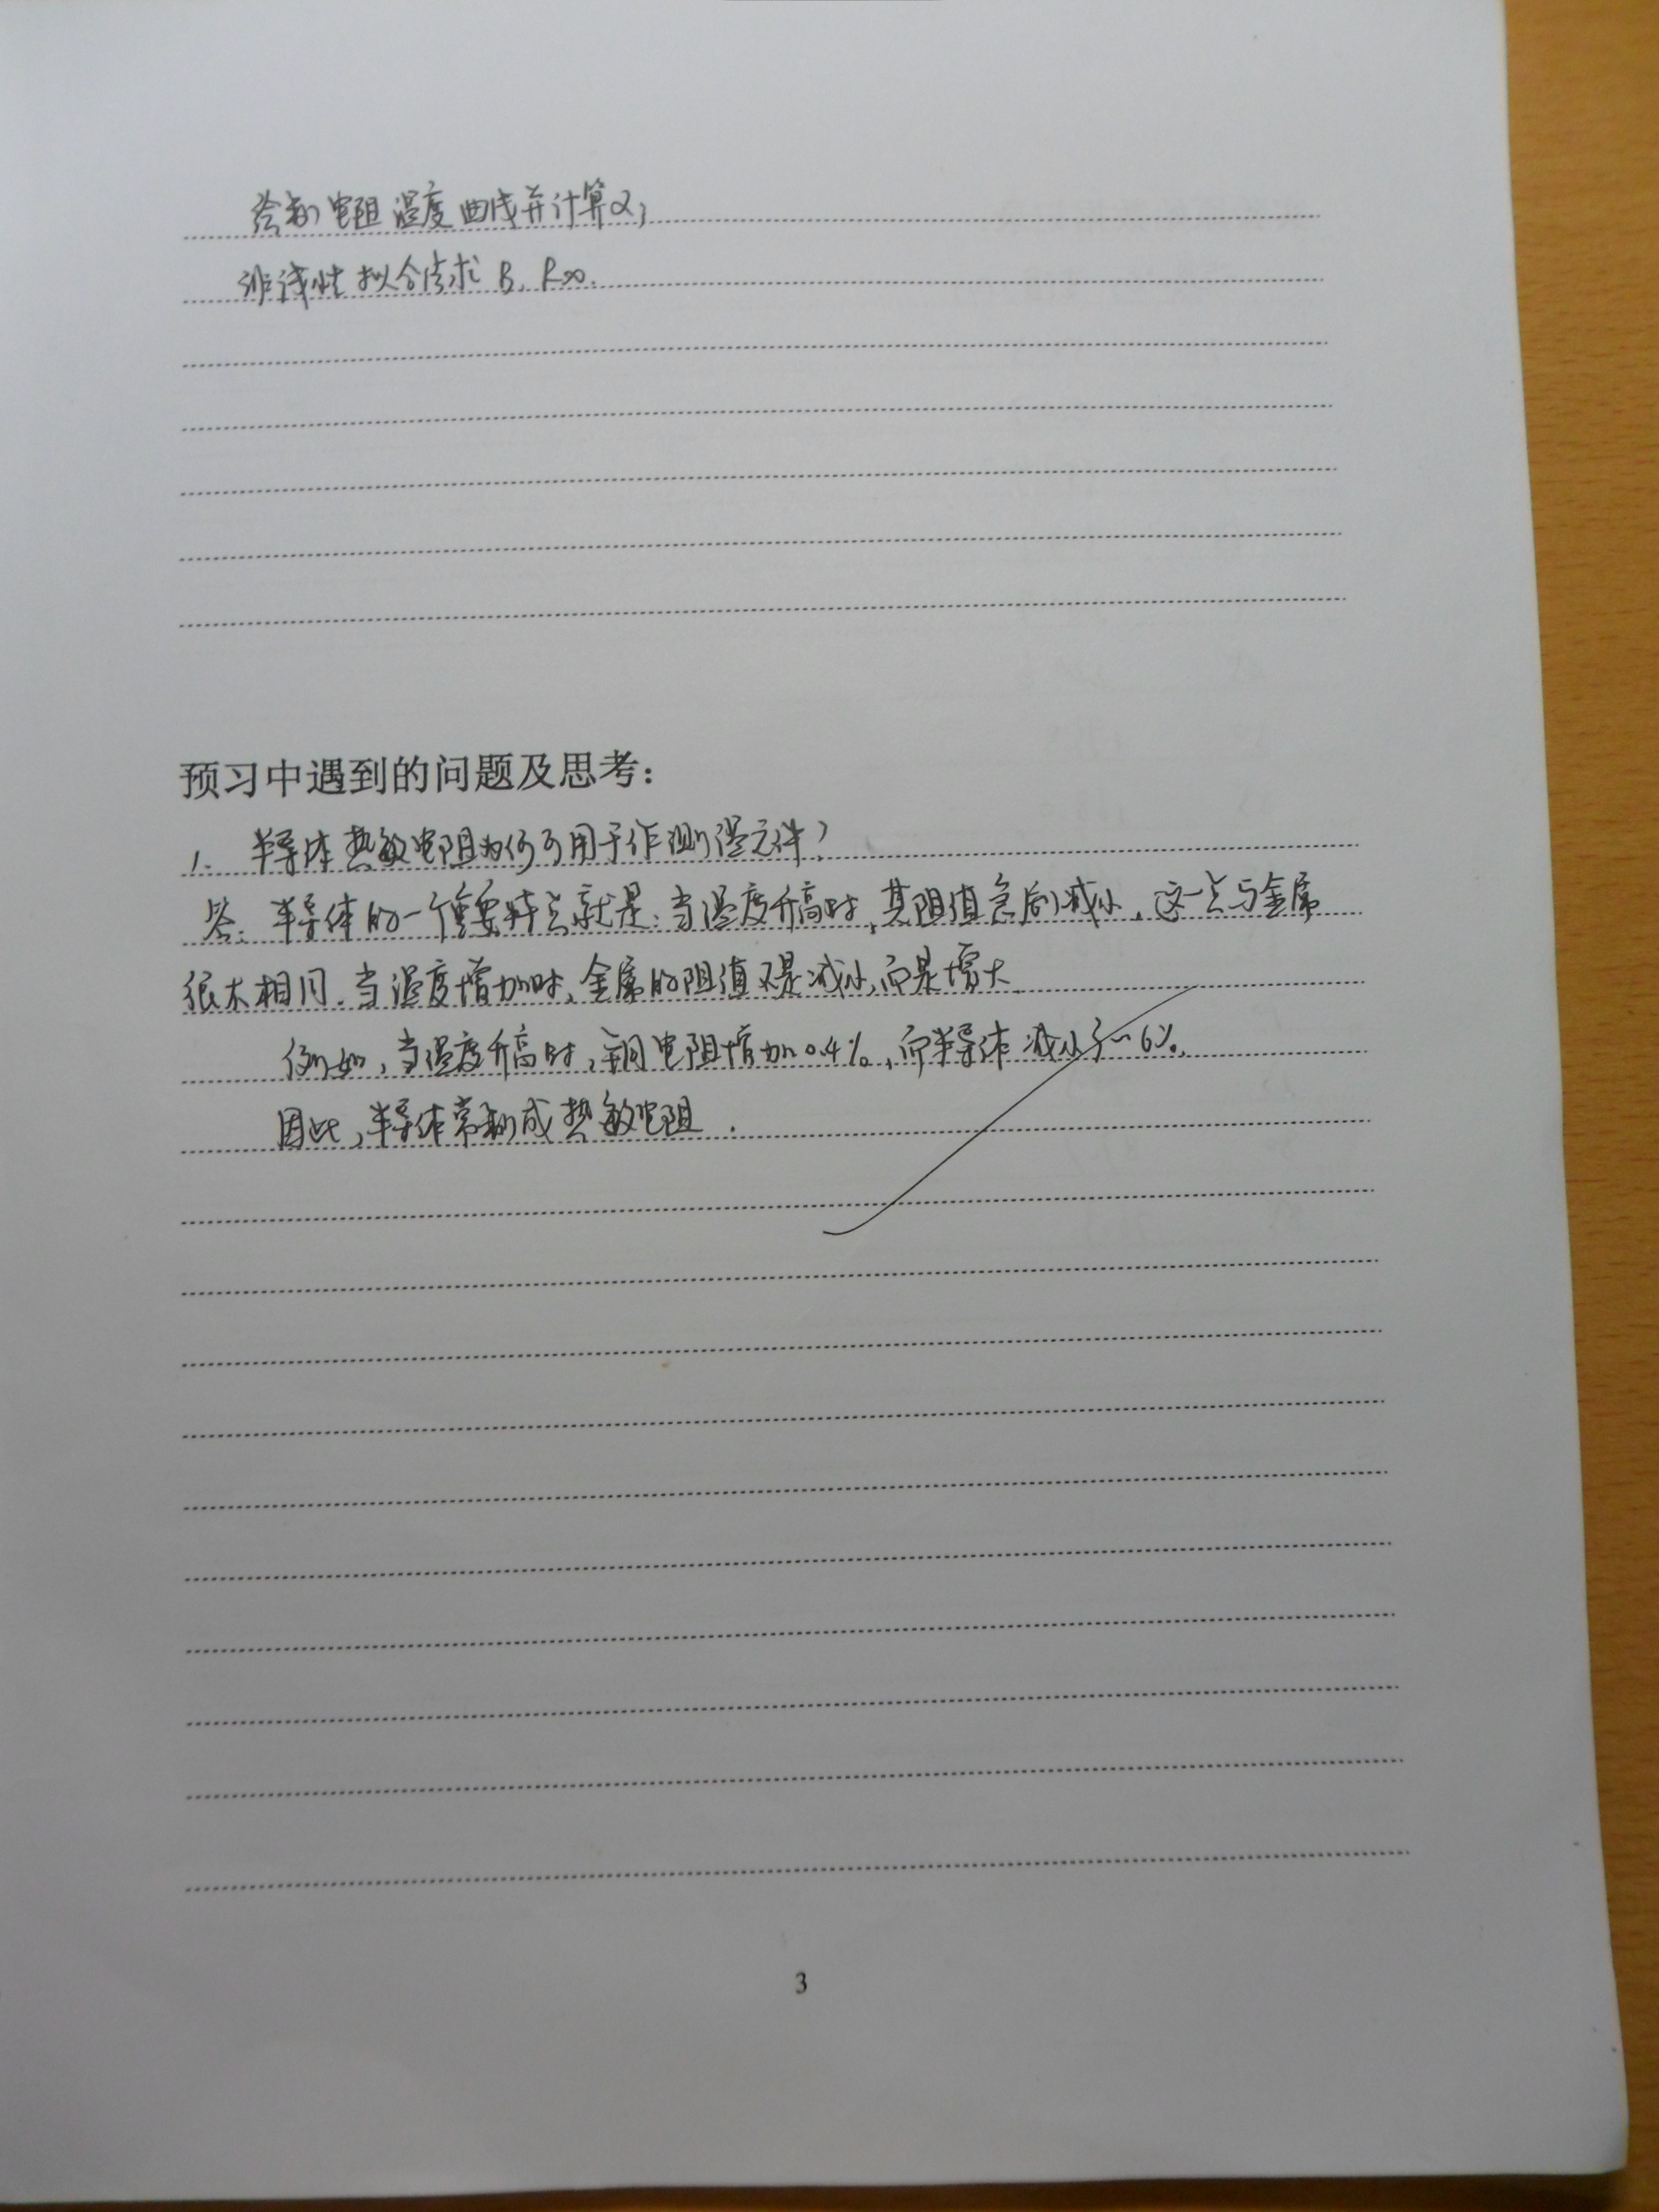 绘制电阻温度曲线并计算α;
非线性拟合法求 B, R∞.
预习中遇到的问题及思考：
1. 半导体热敏电阻为何可用于作测温元件?
答: 半导体的一个重要特点就是: 当温度升高时, 其阻值急剧减小, 这一点与金属
很不相同. 当温度增加时, 金属的阻值不是减小, 而是增大.
例如, 当温度升高时, 铜电阻增加0.4%, 而半导体减小3~6%.
因此, 半导体常制成热敏电阻.
3